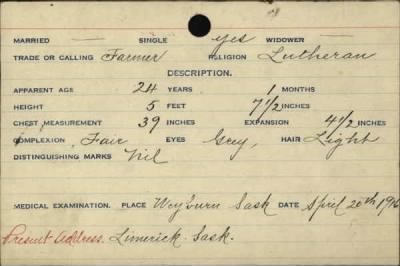 MARRIED — SINGLE yes WIDOWER —
TRADE OR CALLING Farmer RELIGION Lutheran
DESCRIPTION.
APPARENT AGE 24 YEARS 1 MONTHS
HEIGHT 5 FEET 7 1/2 INCHES
CHEST MEASUREMENT 39 INCHES EXPANSION 4 1/2 INCHES
COMPLEXION Fair EYES Grey, HAIR Light
DISTINGUISHING MARKS Nil
MEDICAL EXAMINATION. PLACE Weyburn Sask DATE April 20th 1916
Present Address. Limerick Sask.